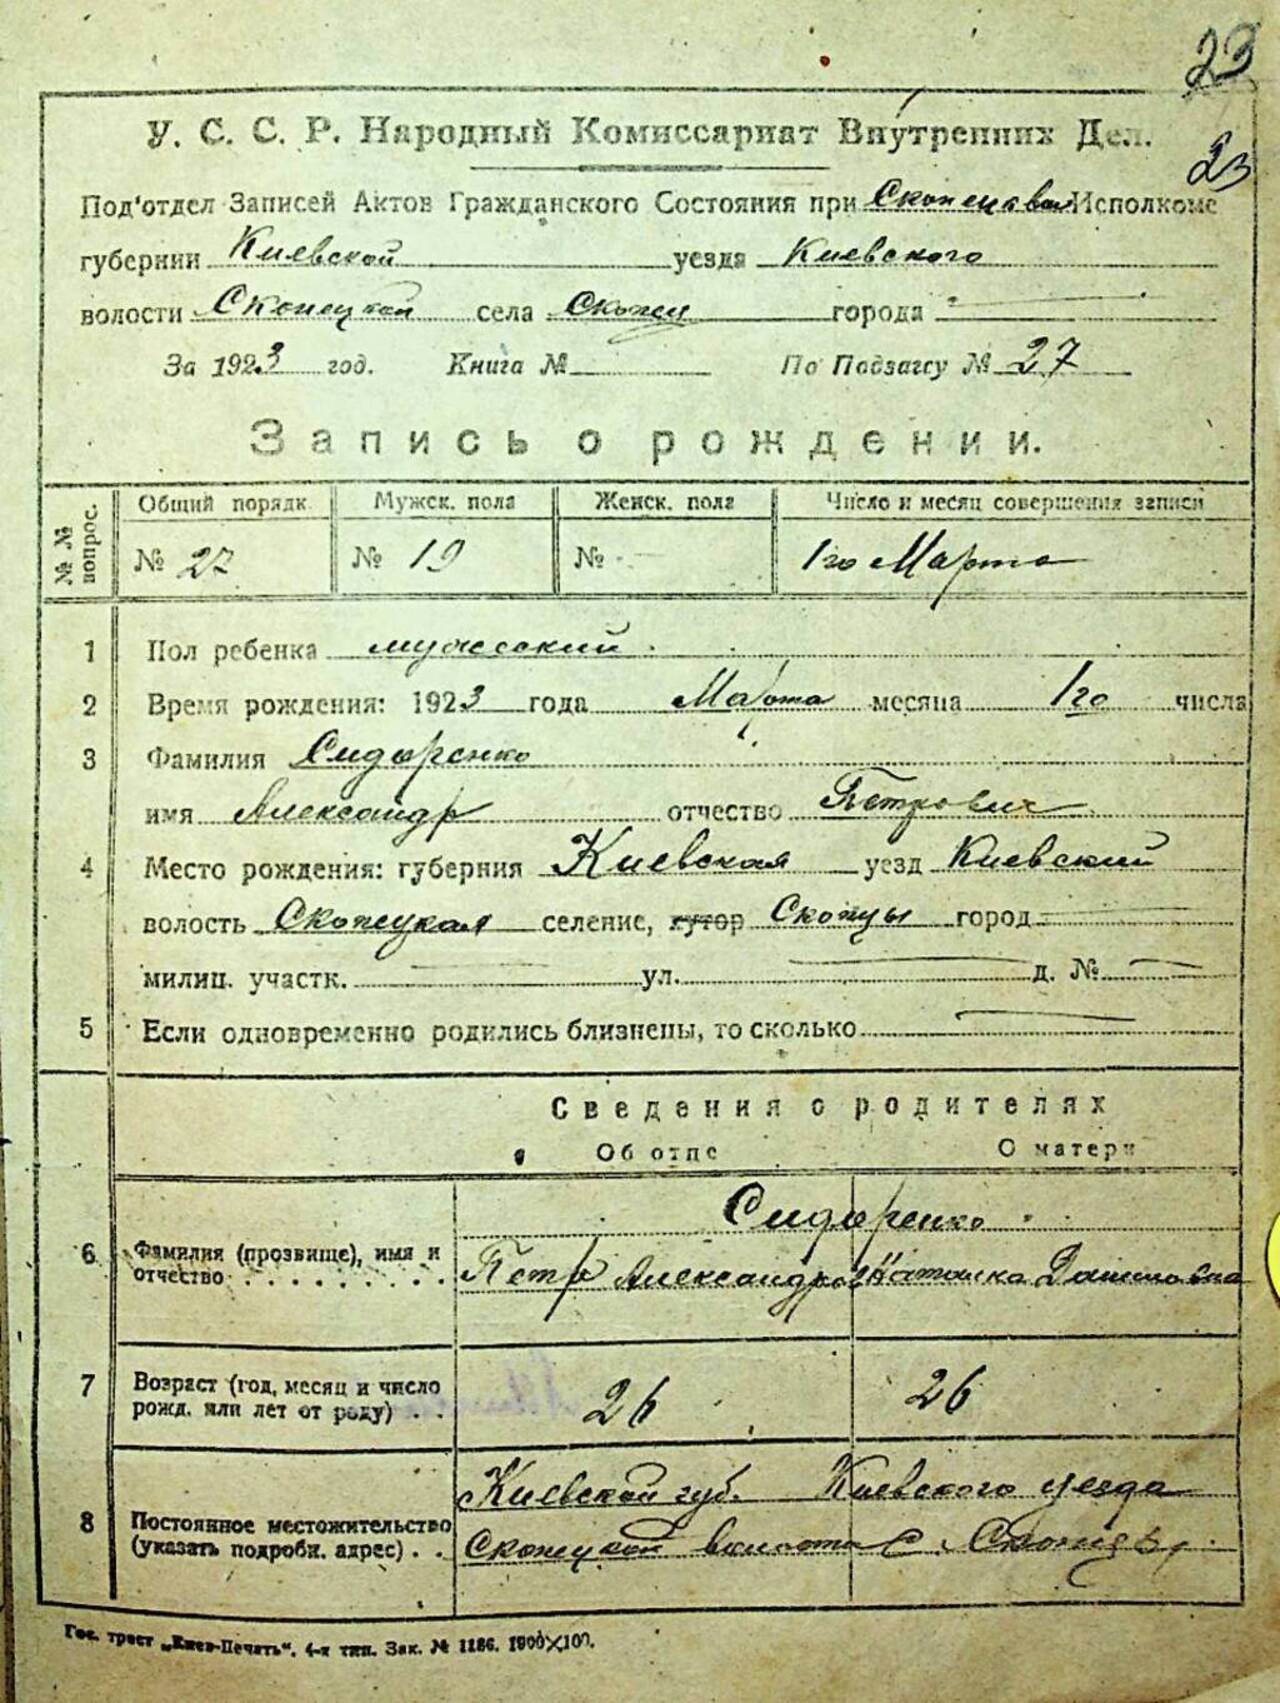 23
У. С. С. Р. Народный Комиссариат Внутренних Дел.
23
Под'отдел Записей Актов Гражданского Состояния при Исполкоме
губернии Киевской уезда Киевского
волости Скопецкой села города
За 1923 год. Книга № По Подзагсу № 27
Запись о рождении.
№ № вопрос.
Общий порядк. Мужск. пола Женск. пола Число и месяц совершения записи
№ 27 № 19 № - 1го Марта
1 Пол ребенка мужеский
2 Время рождения: 1923 года Марта месяца 1го числа
3 Фамилия Сидоренко
имя Александр отчество Петрович
4 Место рождения: губерния Киевская уезд Киевский
волость Скопецкая селение, хутор Скопцы город
милиц. участк. ул. д. №
5 Если одновременно родились близнецы, то сколько
Сведения о родителях
Об отце О матери
Сидоренко
6 Фамилия (прозвище), имя и
отчество
Петр Александров Наталка Даниловна
7 Возраст (год, месяц и число
рожд. или лет от роду) . . 26 26
Киевской губ. Киевского уезда
8 Постоянное местожительство
(указать подробн. адрес) . . Скопецкой волости с. Скопцы
Гос. трест „Киев-Печать“. 4-я тип. Зак. № 1186. 1000×100.